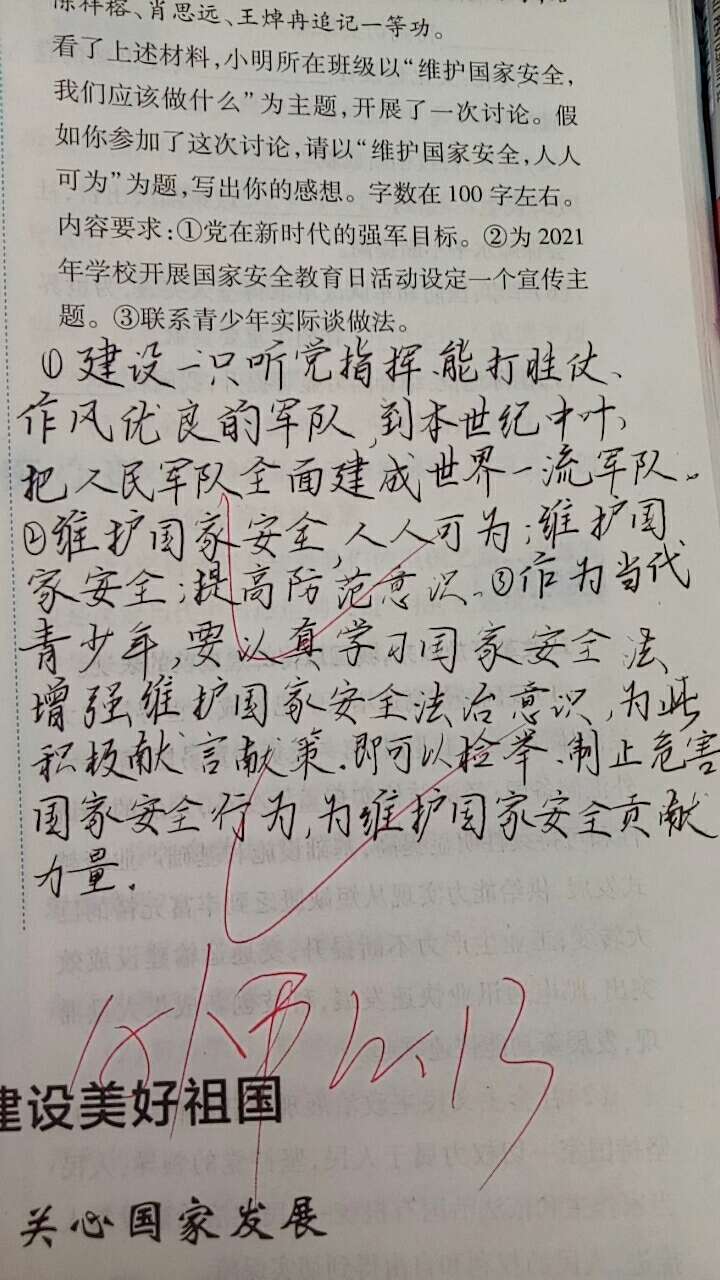 陈祥榕、肖思远、王焯冉追记一等功。
看了上述材料,小明所在班级以“维护国家安全,
我们应该做什么”为主题,开展了一次讨论。假
如你参加了这次讨论,请以“维护国家安全,人人
可为”为题,写出你的感想。字数在100字左右。
内容要求:①党在新时代的强军目标。②为2021
年学校开展国家安全教育日活动设定一个宣传主
题。③联系青少年实际谈做法。
①建设一只听党指挥、能打胜仗、
作风优良的军队,到本世纪中叶,
把人民军队全面建成世界一流军队。
②维护国家安全,人人可为;维护国
家安全;提高防范意识。③作为当代
青少年,要认真学习国家安全法
增强维护国家安全法治意识,为此
积极献言献策.即可以检举、制止危害
国家安全行为,为维护国家安全贡献
力量.
建设美好祖国
关心国家发展